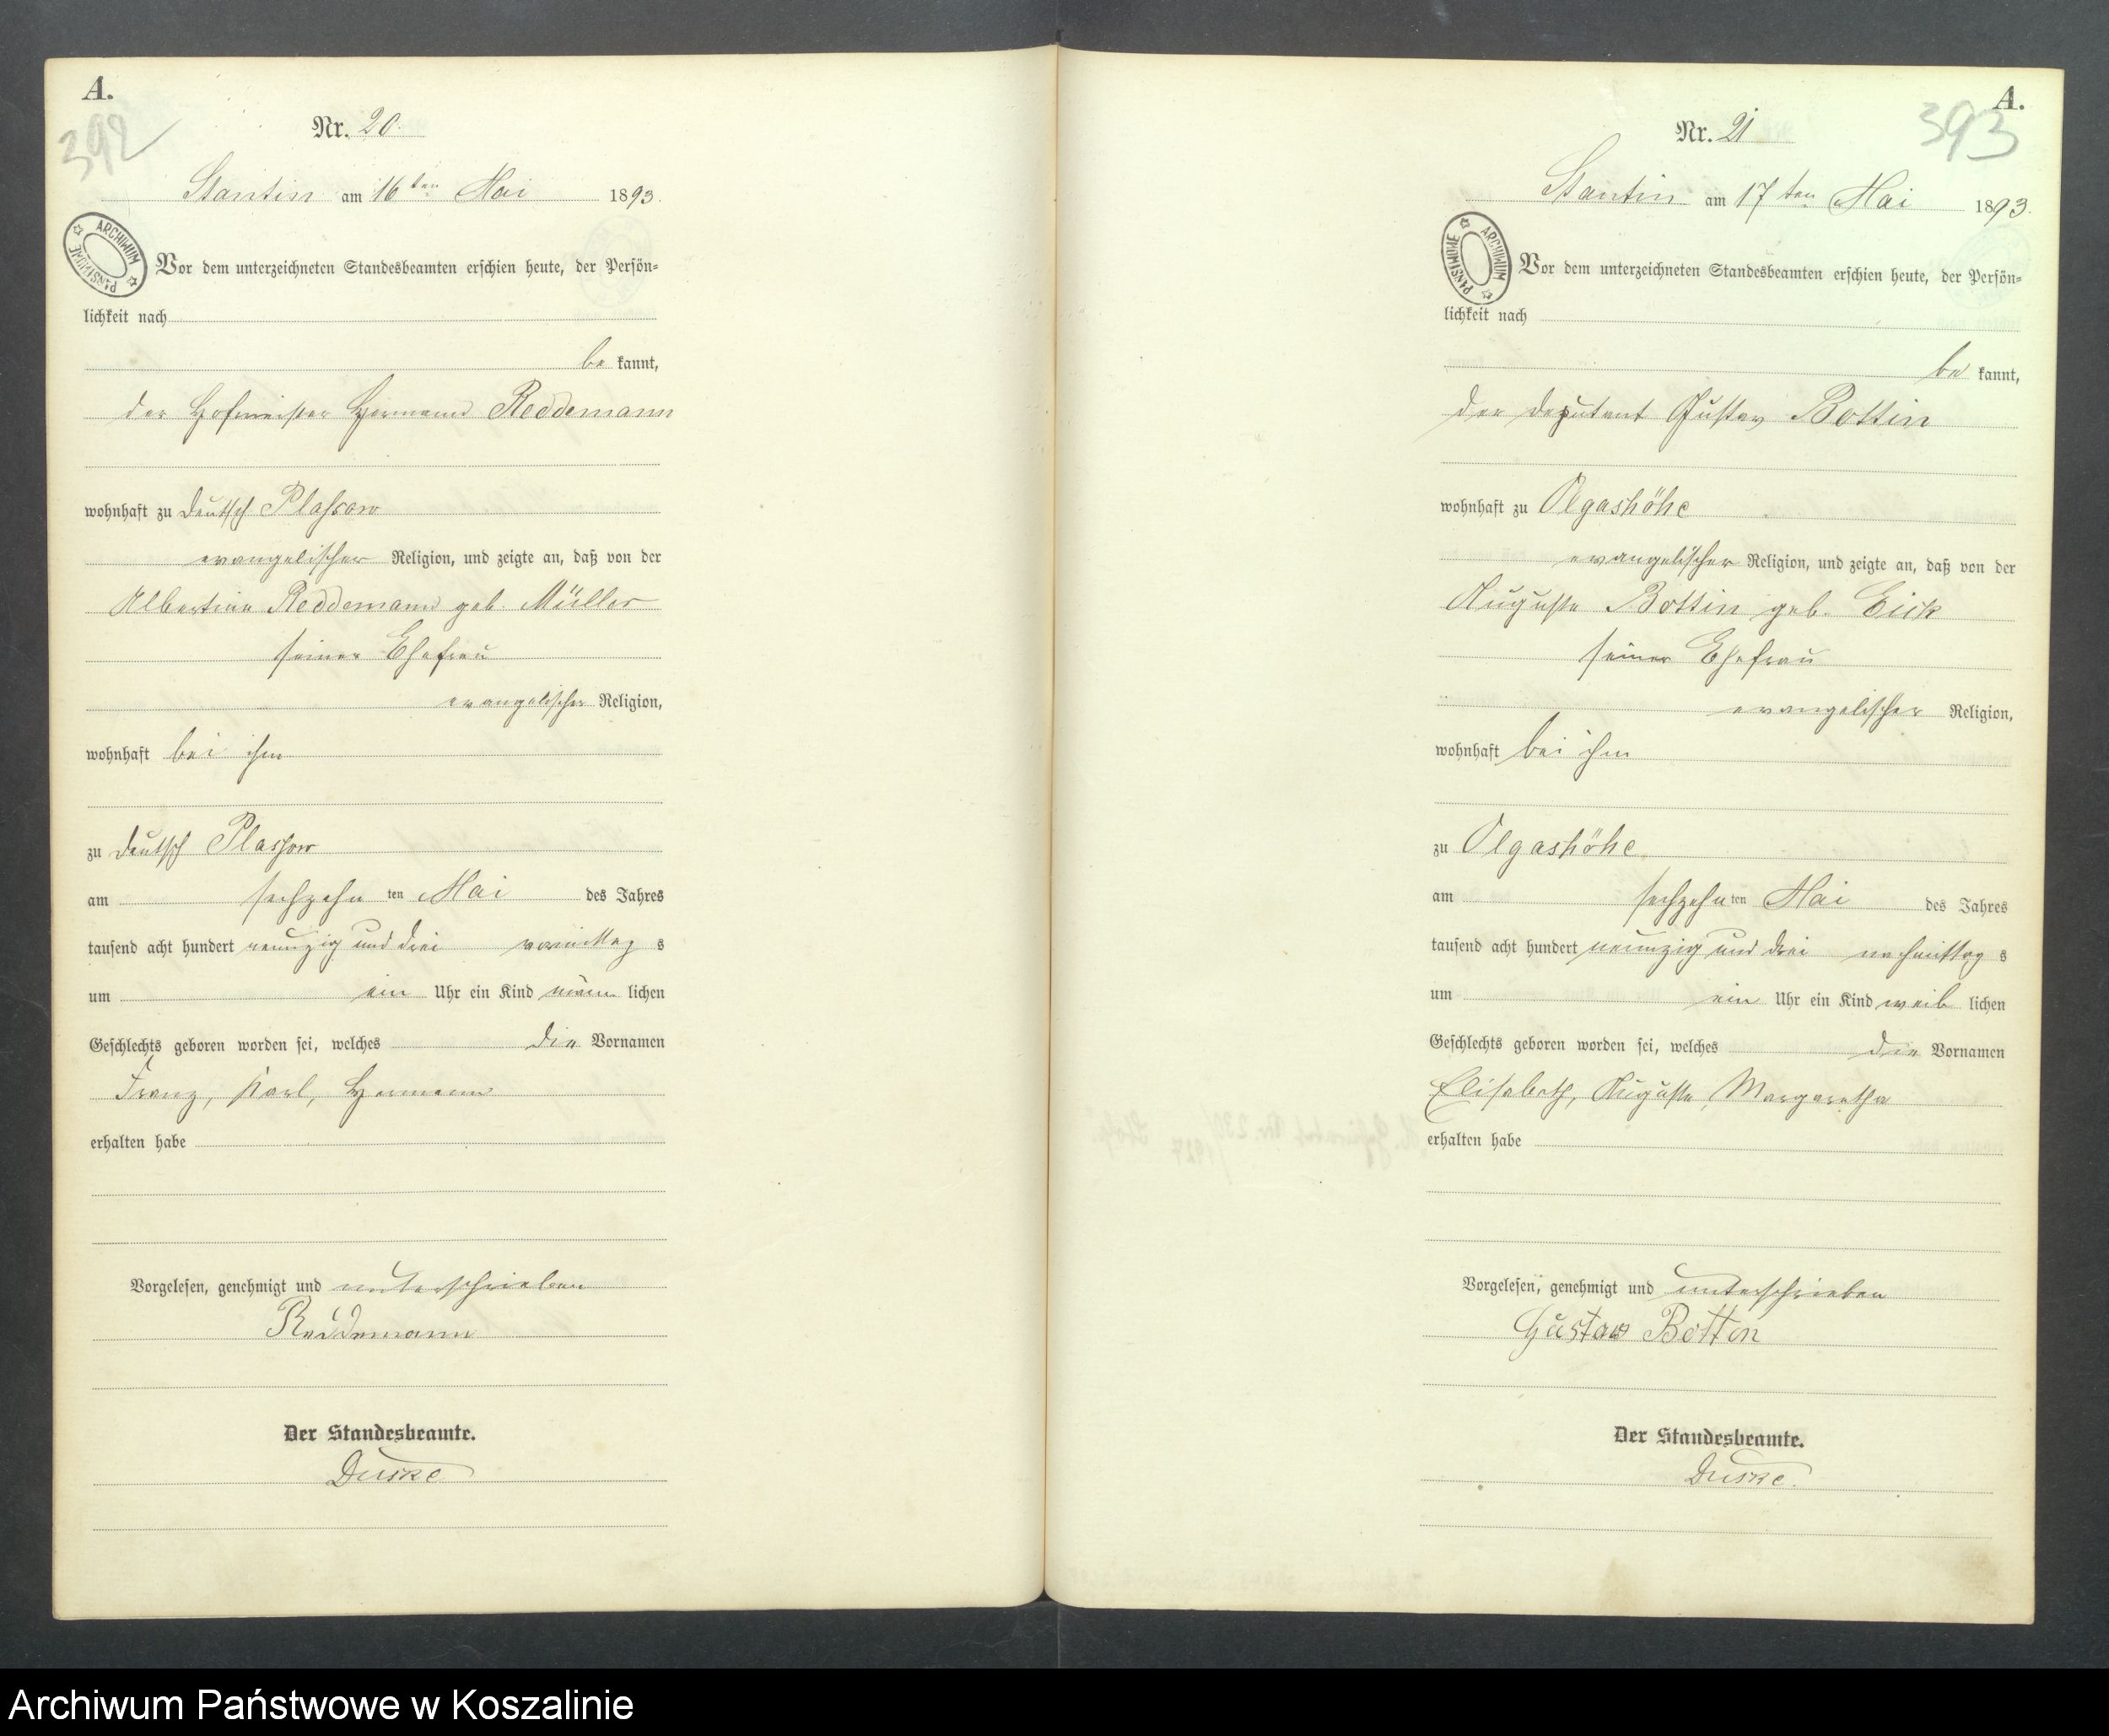 A.
392
Nr. 20.
Stantin am 16ten Mai 1893.
ARCHIWUM PAŃSTWOWE
Vor dem unterzeichneten Standesbeamten erschien heute, der Persön-
lichkeit nach
be kannt,
der Hofmeister Hermann Reddemann
wohnhaft zu Deutsch Plassow
evangelischer Religion, und zeigte an, daß von der
Albertine Reddemann geb. Müller
seiner Ehefrau
evangelischer Religion,
wohnhaft bei ihm
zu Deutsch Plassow
am sechzehn ten Mai des Jahres
tausend acht hundert neunzig und drei vormittag s
um ein Uhr ein Kind männ lichen
Geschlechts geboren worden sei, welches die Vornamen
Franz, Karl, Hermann
erhalten habe
Vorgelesen, genehmigt und unterschrieben
Reddemann
Der Standesbeamte.
Duske
A.
393
Nr. 21
Stantin am 17ten Mai 1893.
ARCHIWUM PAŃSTWOWE
Vor dem unterzeichneten Standesbeamten erschien heute, der Persön-
lichkeit nach
be kannt,
der Deputant Gustav Bottin
wohnhaft zu Olgashöhe
evangelischer Religion, und zeigte an, daß von der
Auguste Bottin geb. Eick
seiner Ehefrau
evangelischer Religion,
wohnhaft bei ihm
zu Olgashöhe
am sechzehn ten Mai des Jahres
tausend acht hundert neunzig und drei nachmittag s
um ein Uhr ein Kind weib lichen
Geschlechts geboren worden sei, welches die Vornamen
Elisabeth, Auguste, Margarethe
erhalten habe
Vorgelesen, genehmigt und unterschrieben
Gustav Bottin
Der Standesbeamte.
Duske.
Archiwum Państwowe w Koszalinie